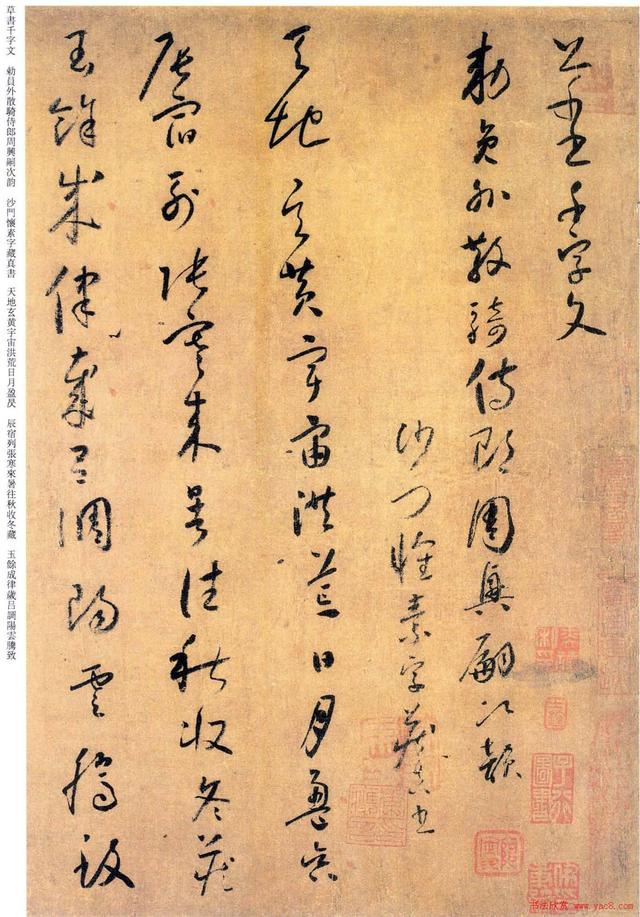 草書千字文
勅員外散騎侍郎周興嗣次韻
沙門懷素字藏真書
天地玄黄宇宙洪荒日月盈昃
辰宿列張寒來暑往秋收冬藏
玉餘成律歲吕調陽雲騰致
草書千字文 勅員外散騎侍郎周興嗣次韵 沙門懷素字藏真書 天地玄黄宇宙洪荒日月盈昃 辰宿列張寒來暑往秋收冬藏 玉餘成律歲吕調陽雲騰致
书法欣赏 www.yac8.com